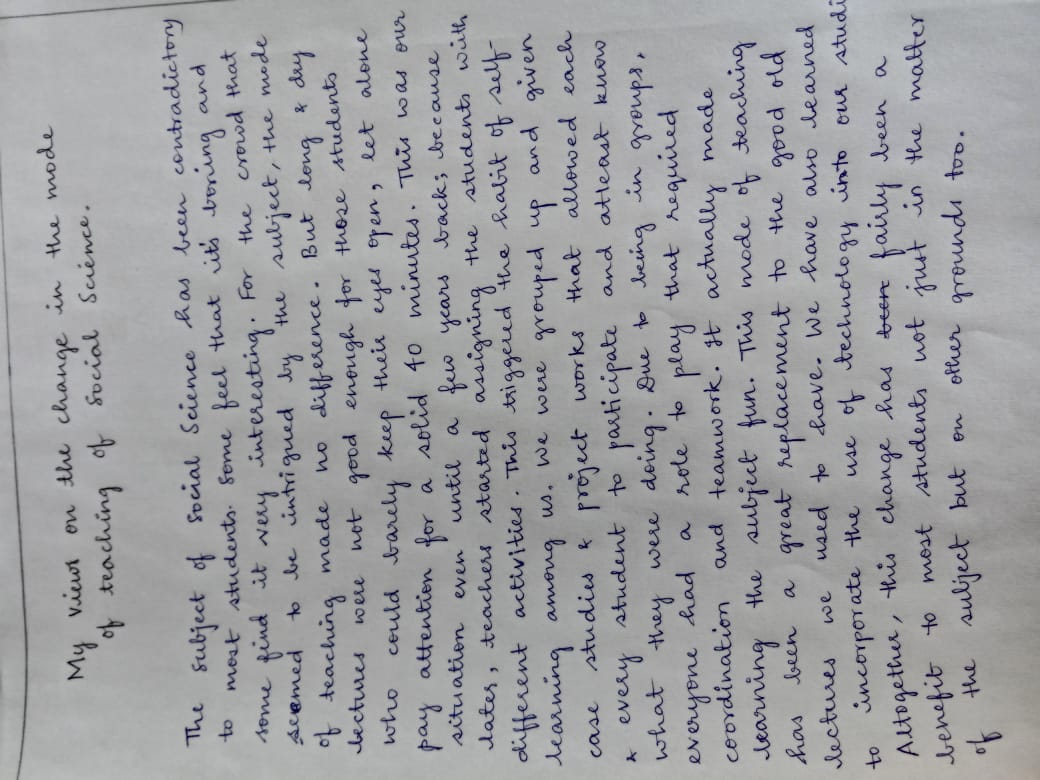 My views on the change in the mode
of teaching of Social Science.
The subject of Social Science has been contradictory
to most students. Some feel that it's boring and
some find it very interesting. For the crowd that
seemed to be intrigued by the subject, the mode
of teaching made no difference. But long & dry
lectures were not good enough for those students
who could barely keep their eyes open, let alone
pay attention for a solid 40 minutes. This was our
situation even until a few years back; because
lates, teachers started assigning the students with
different activities. This triggered the habit of self-
learning among us. We were grouped up and given
case studies & project works that allowed each
& every student to participate and atleast know
what they were doing. Due to being in groups,
everyone had a role to play that required
coordination and teamwork. It actually made
learning the subject fun. This mode of teaching
has been a great replacement to the good old
lectures we used to have. We have also learned
to incorporate the use of technology into our studi
Altogether, this change has been fairly been a
benefit to most students not just in the matter
of the subject but on other grounds too.